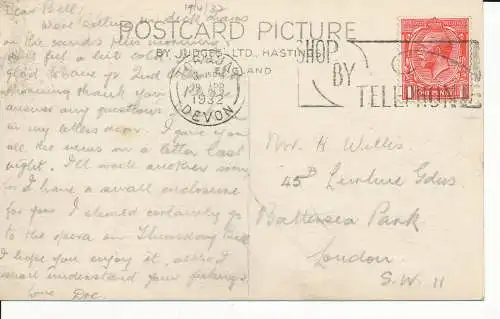 19/4/32
Dear Bill,
Went
on the sands this morning
felt a bit
glad to have yr 2nd
morning thank you
answer any questions
in my letters dear. I gave you
all the news in a letter last
night. I'll write another soon
for I have a small enclosure
for you. I should certainly go
to the opera on Thursday Bill
I hope you enjoy it.
shall understand your feelings.
Love Doe.
POSTCARD PICTURE
BY JUDGES, LTD., HASTINGS,
ENGLAND
TORQUAY
19 APR
1932
DEVON
SHOP
BY
TELEPHONE
1 ONE PENNY 1
Mr. H Willis
45B Lurline Gdns.
Battersea Park
London
S.W. 11